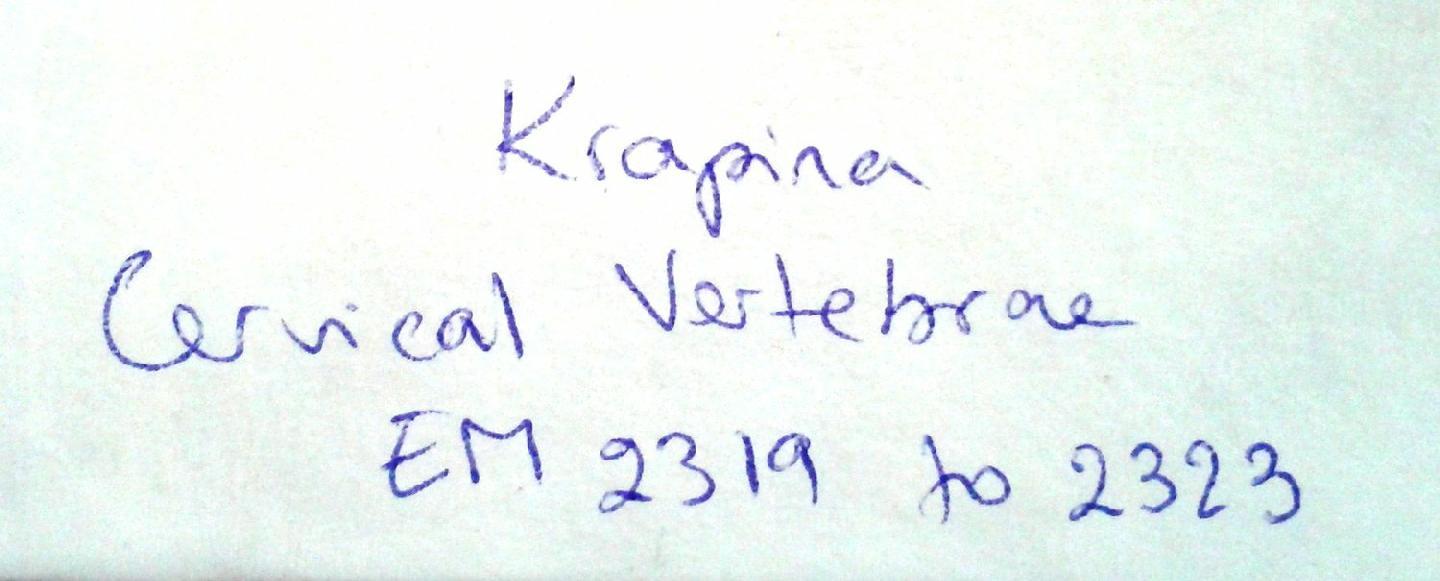 Krapina
Cervical Vertebrae
EM 2319 to 2323